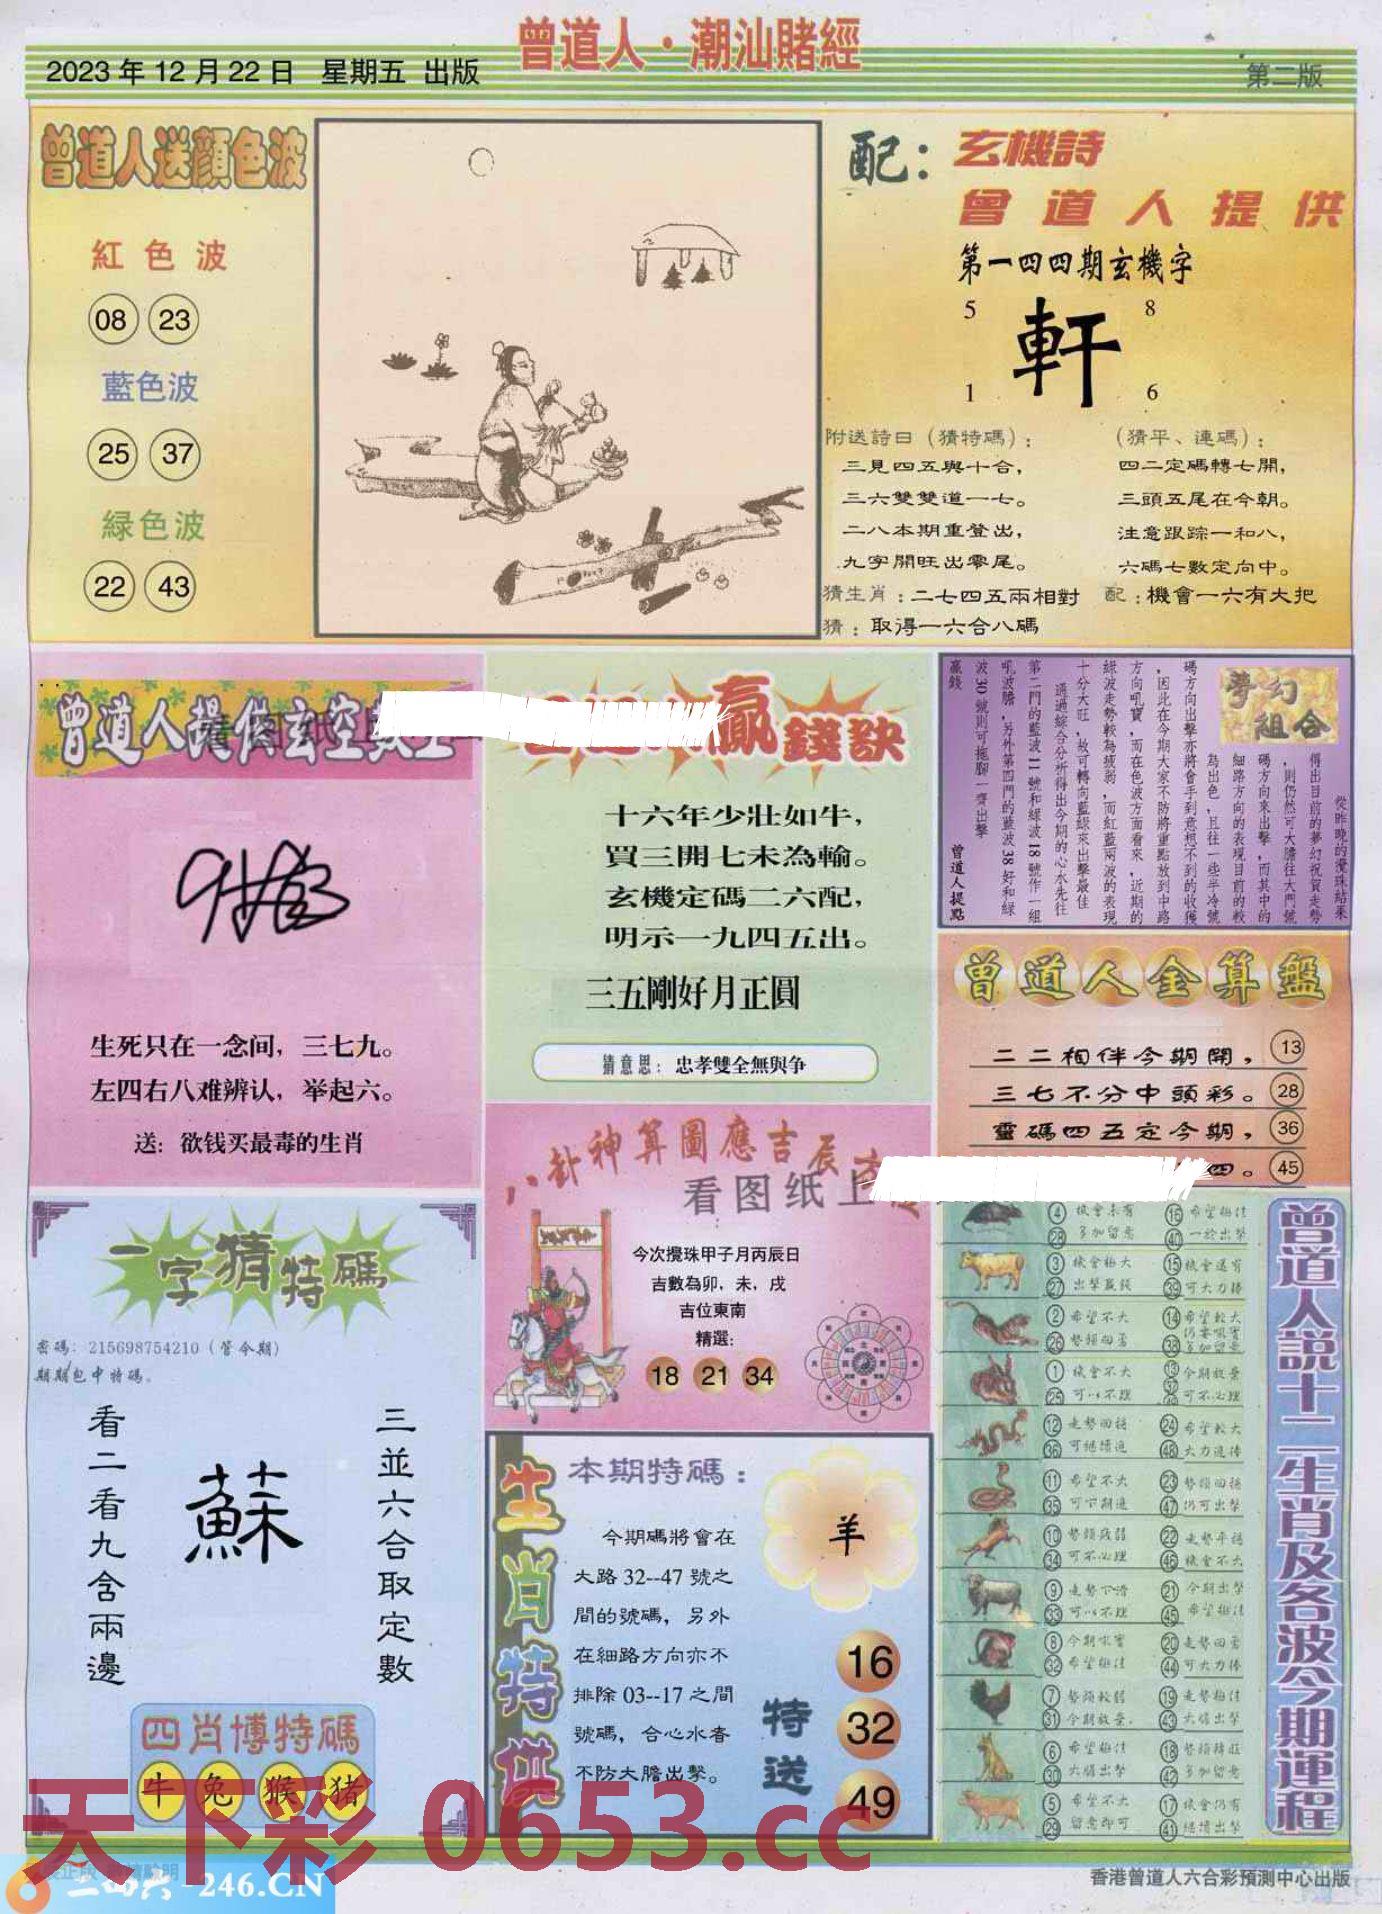 曾道人·潮汕賭經
2023年12月22日 星期五 出版
第二版
曾道人送顏色波
紅色波
08 23
藍色波
25 37
緑色波
22 43
配：玄機詩
曾道人提供
第一四四期玄機字
5 8
軒
1 6
附送詩曰（猜特碼）：
三見四五與十合，
三六雙雙道一七。
二八本期重登出，
九字開旺出零尾。
（猜平、連碼）：
四二定碼轉七開，
三頭五尾在今朝。
注意跟踪一和八，
六碼七數定向中。
猜生肖：二七四五兩相對 配：機會一六有大把
猜：取得一六合八碼
曾道人提供玄空數
生死只在一念间，三七九。
左四右八难辨认，举起六。
送：欲钱买最毒的生肖
贏錢訣
十六年少壯如牛，
買三開七未為輸。
玄機定碼二六配，
明示一九四五出。
三五剛好月正圓
猜意思：忠孝雙全無與争
夢幻組合
從昨晚的攪珠結果
得出目前的夢幻祝賀走勢
，則仍然可大膽往大門號
碼方向來出擊，而其中的
細路方向的表現目前的較
為出色，且往一些半冷號
碼方向出擊亦將會手到意想不到的收獲
，因此在今期大家不防將重點放到中路
方向吼寶，而在色波方面看來，近期的
綠波走勢較為疲弱，而紅藍兩波的表現
十分大旺，故可轉向藍綠來出擊最佳
通過綜合分析得出今期的心水先往
第二門的藍波11號和綠波18號作一組
吼波膽，另外第四門的藍波38好和綠
波30號則可拖腳一齊出擊
贏錢
曾道人提點
曾道人金算盤
二二相伴今期開， 13
三七不分中頭彩。 28
靈碼四五定今期， 36
四。 45
八卦神算圖應吉辰
看图纸上
今次攪珠甲子月丙辰日
吉數為卯，未，戌
吉位東南
精選：
18 21 34
一字猜特碼
密碼：215698754210（管今期）
期期包中特碼。
看二看九含兩邊
蘇
三並六合取定數
四肖博特碼
牛 兔 猴 猪
生肖特供
本期特碼：
今期碼將會在
大路32--47號之
間的號碼，另外
在細路方向亦不
排除03--17之間
號碼，合心水者
不防大膽出擊。
羊
特送
16
32
49
曾道人説十二生肖及各波今期運程
④ 機會未有 ⑯ 希望極佳
㉘ 多加留意 ㊵ 一於出擊
③ 機會極大 ⑮ 機會還有
㉗ 出擊贏錢 ㊴ 可大力捧
② 希望不大 ⑭ 希望較大
㉖ 勢頭回勇 ㊳
① 機會不大 ⑬ 今期放棄
㉕ 可以不理 可不必理
⑫ 走勢回穩 ㉔ 希望較大
㊱ 可繼續追 ㊽ 大力追捧
⑪ 希望不大 ㉓ 勢頭回穩
㉟ 可下期追 ㊼ 仍可出擊
⑩ 勢頭疲弱 ㉒ 走勢平穩
㉞ 可不必理 ㊻ 機會不大
⑨ 走勢下滑 ㉑ 今期出擊
㉝ 可以不理 ㊺ 希望極佳
⑧ 今期吼寶 ⑳ 走勢回勇
㉜ 希望極佳 ㊹ 可大力捧
⑦ 勢頭較弱 ⑲ 走勢極佳
㉛ 今期放棄. ㊸ 大膽出擊
⑥ 希望極佳 ⑱
㉚ 大膽出擊 ㊷ 多加留意
⑤ 希望不大 ⑰ 機會仍有
㉙ 留意即可 ㊶ 繼續出擊
天下彩 0653.cc
二四六-246.CN
香港曾道人六合彩預測中心出版